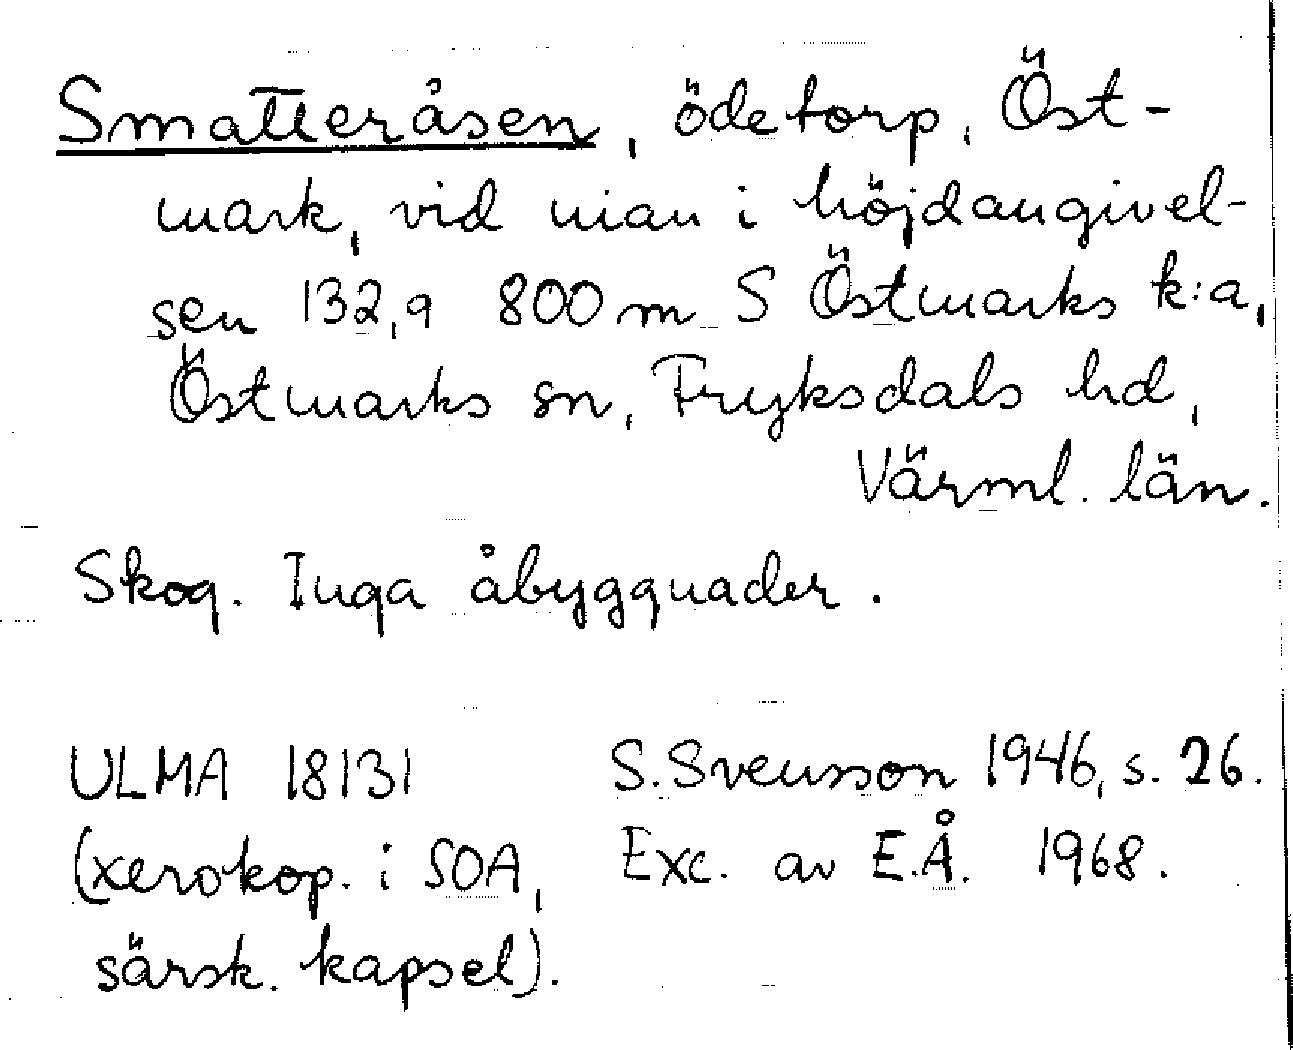 Smatteråsen, ödetorp, Öst-
mark, vid nian i höjdangivel-
sen 132,9 800 m S Östmarks k:a,
Östmarks sn, Fryksdals hd,
Värml. län.
Skog. Inga åbyggnader.
ULMA 18131 S. Svensson 1946, s. 26.
(xerokop. i SOA, Exc. av E.Å. 1968.
särsk. kapsel).